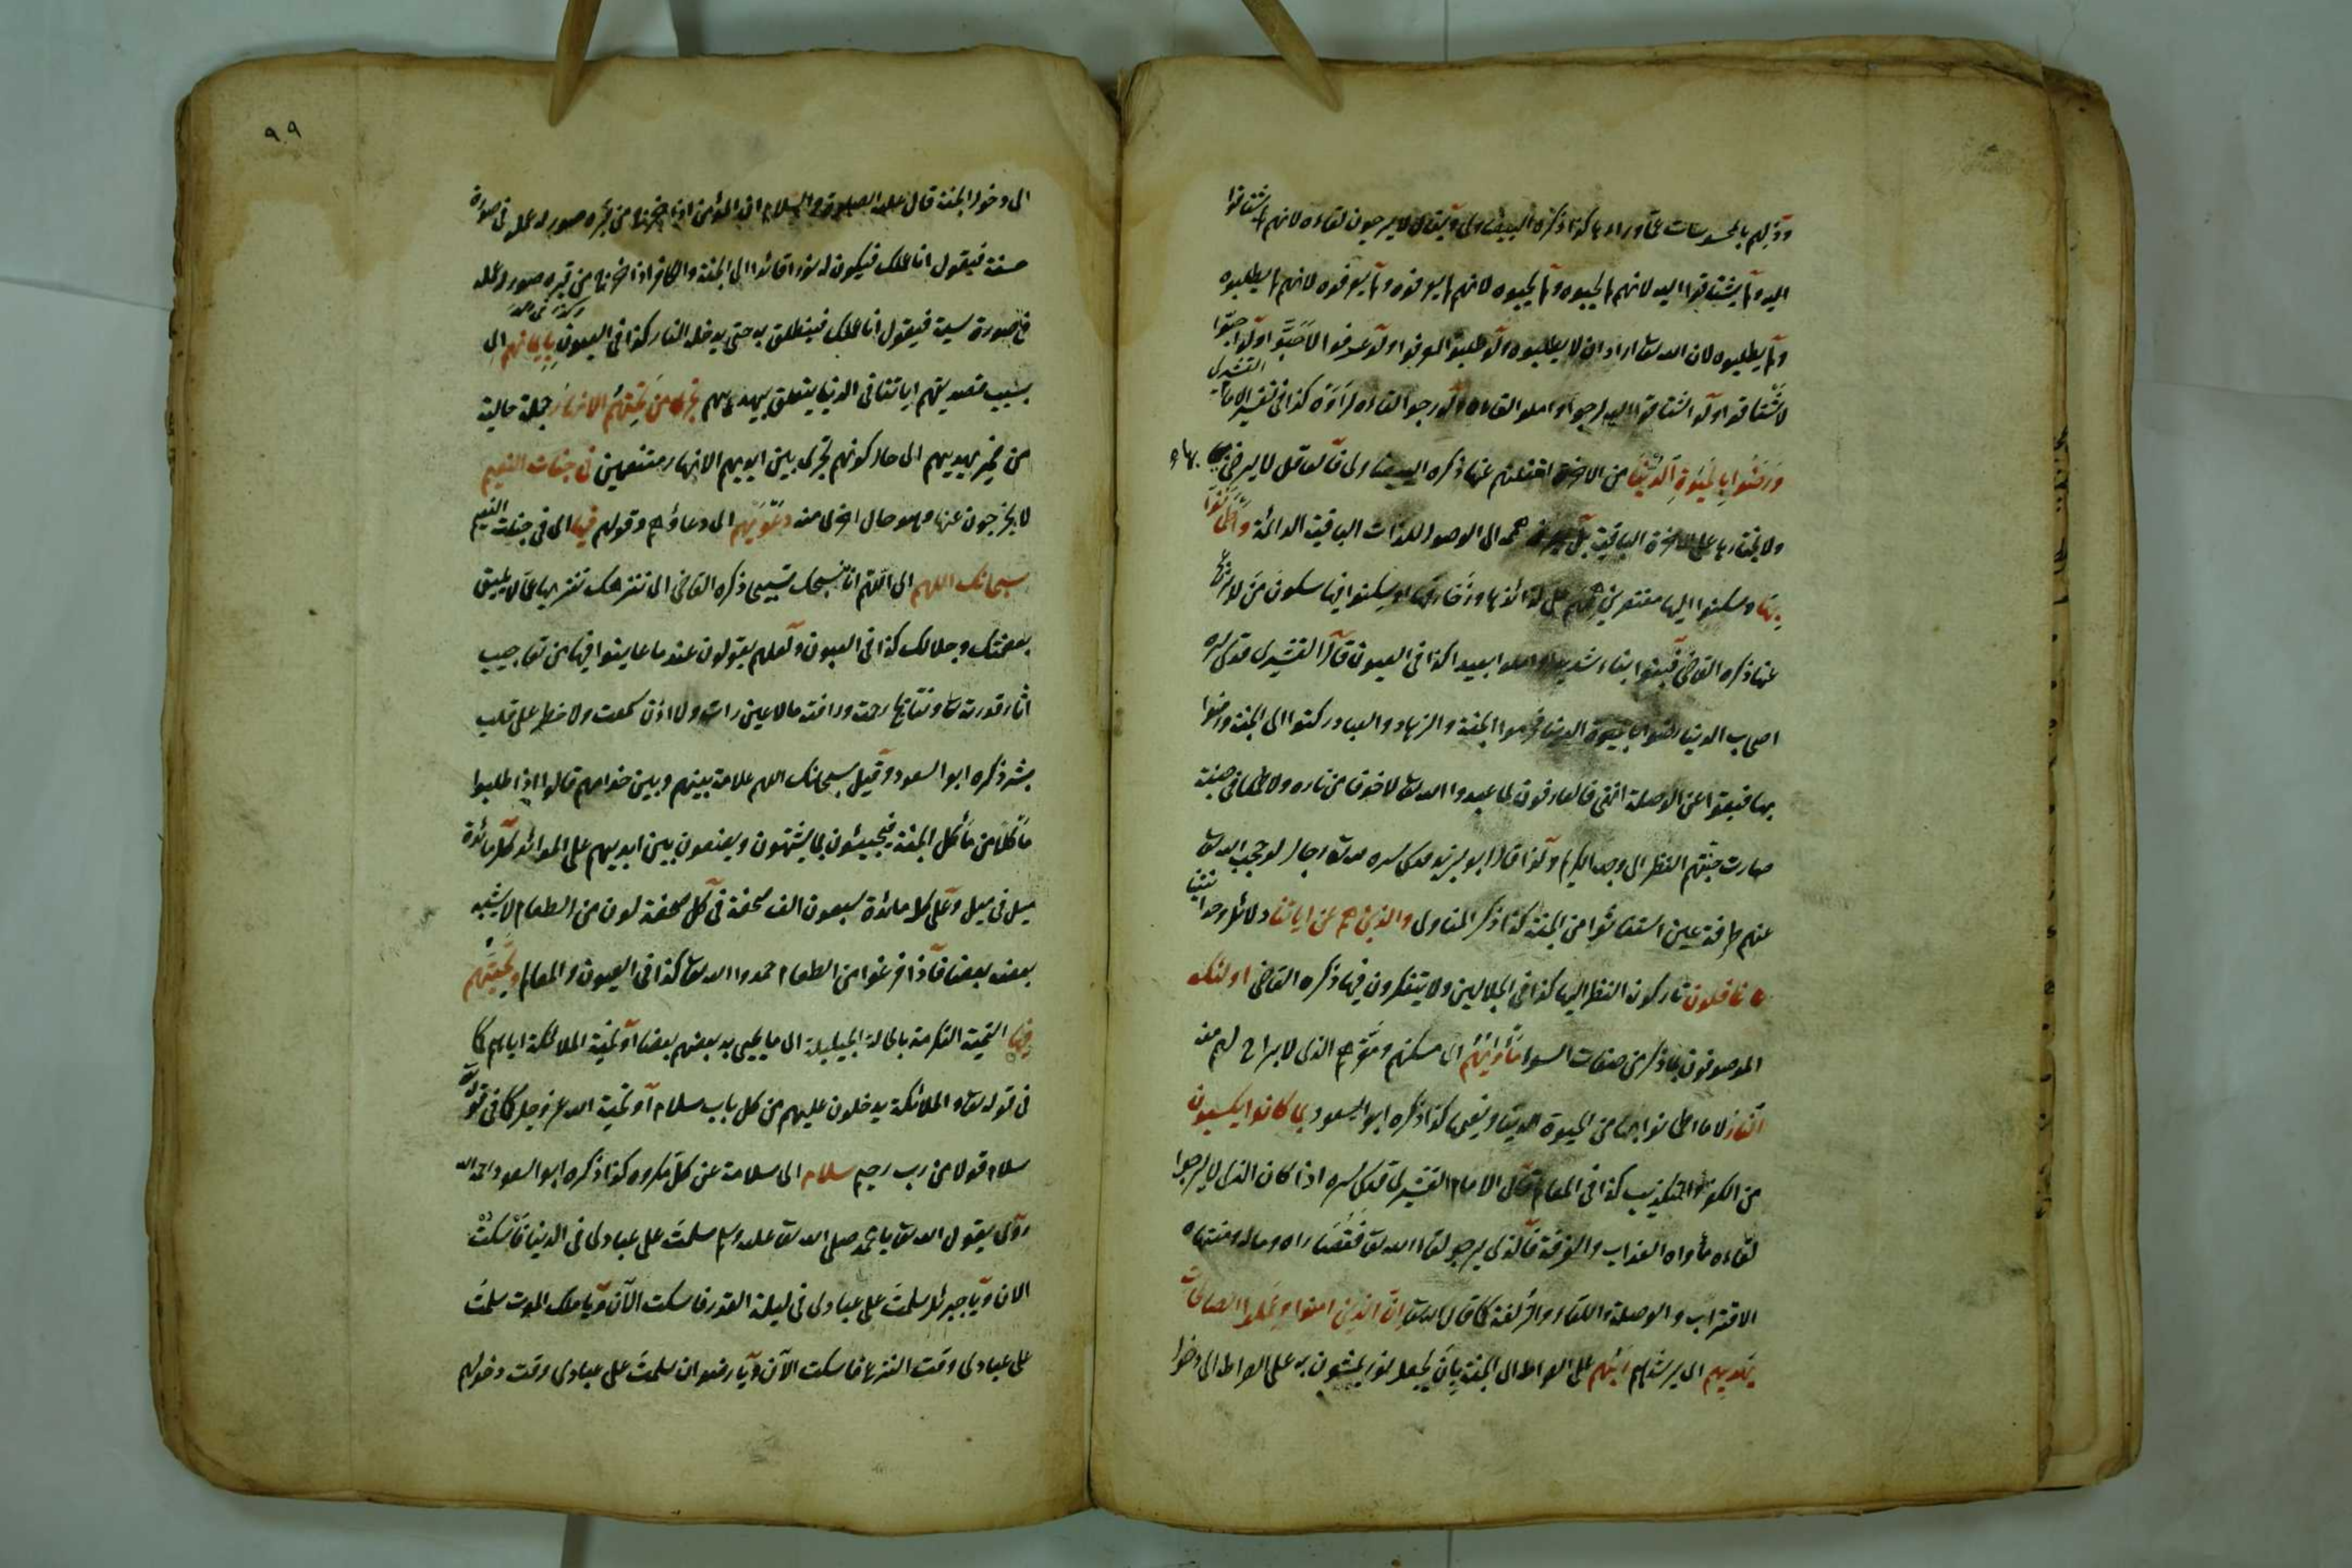 وذهولهم بالمحسوسات عما وراءها كذا ذكره البيضاوى ويقال لا يرجون لقاءه لانهم لم يشتاقوا
اليه ولم يشتاقوا اليه لانهم لم يحبوه ولم يحبوه لانهم لم يعرفوه ولم يعرفوه لانهم لم يطلبوه
ولم يطلبوه لان الله تعا اراد ان لا يطلبوه ولو طلبوا لعرفوا ولو عرفوا لاحبوا ولو احبوا
لاشتاقوا ولو اشتاقوا اليه لرجوا واملوا لقاءه ولو رجوا لقاءه لرأوه كذا فى تفسير الامام القشيرى
ورضوا بالحيوة الدنيا من الاخرة لغفلتهم عنها ذكره البيضاوى فالعاقل لا يرضى بها
ولا يختارها على الاخرة الباقية بل الى الوصول للذات الباقية الدائمة واطمأنوا
بها وسكنوا اليها مقتصرين على لذائذها وزخارفها او سكنوا فيها سكون من لا
عنها ذكره القاضى فبنوا بناء شديدا واملوا بعيدا كذا فى العيون قال القشيرى قدس سره
اصحاب الدنيا رضوا بالحيوة الدنيا فحرموا الجنة والزهاد والعباد ركنوا الى الجنة ورضوا
بها فبقوا عن الوصلة انتهى فالعارفون لما عبدوا الله تعا لا خوفا من ناره ولا طمعا فى جنته
صارت جنتهم النظر الى وجهه الكريم ولذا قال ابو يزيد قدس سره لله تعا رجال لو حجب الله تعا
عنهم طرفة عين استغاثوا من الجنة كذا ذكر المناوى والذين هم عن اياتنا دلائل وحدانيتنا
غافلون تاركون النظر اليها كذا فى الجلالين ولا يتفكرون فيها ذكره القاضى اولئك
الموصوفون بما ذكر من صفات السوء مأويهم اى مسكنهم ومقرهم الذى لا براح لهم منه
النار لا ما اطمأنوا بها من الحيوة الدنيا ونعيمها كذا ذكره ابو السعود بما كانوا يكسبون
من الكفر والتكذيب كذا فى المعالم قال الامام القشيرى قدس سره اذا كان الذى لا يرجوا
لقاءه مأواه العذاب والفرقة فالذى يرجو لقاء الله تعا فقصاراه ومآله ومنتهاه
الاقتراب والوصلة واللقاء والزلفة كما قال الله تعا ان الذين امنوا وعملوا الصالحات
يهديهم اى يرشدهم ربهم على الصراط الى الجنة بان يجعل لهم نورا يمشون به على الصراط الى دخول
٩٩
الى دخول الجنة قال عليه الصلوة والسلام ان المؤمن اذا خرج من قبره صور له عمله فى صورة
حسنة فيقول انا عملك فيكون له نورا قائدا الى الجنة والكافر اذا خرج من قبره صور له عمله
فى صورة سيئة فيقول انا عملك فينطلق به حتى يدخله النار كذا فى العيون بايمانهم اى
بسبب تصديقهم اياتنا فى الدنيا يتعلق بيهديهم تجرى من تحتهم الانهار جملة حالية
من ضمير يهديهم اى حال كونهم تجرى بين ايديهم الانهار متنعمين فى جنات النعيم
لا يخرجون عنها وهو حال اخرى منه دعويهم اى دعاؤهم وقولهم فيها اى فى جنات النعيم
سبحانك اللهم اى اللهم انا نسبحك تسبيحا ذكره القاضى اى ننزهك تنزيها عما لا يليق
بعظمتك وجلالك كذا فى العيون ولعلهم يقولون عند ما عاينوا فيها من تعاجيب
اثار قدرته تعا ونتائج رحمته ورأفته ما لا عين رأت ولا اذن سمعت ولا خطر على قلب
بشر ذكره ابو السعود وقيل سبحانك اللهم علامة بينهم وبين خدامهم قالوا اذا طلبوا
مأكلا من مأكل الجنة فيجيئون بما يشتهون ويضعون بين ايديهم على الموائد كل مائدة
ميل فى ميل وعلى كل مائدة سبعون الف صحفة فى كل صحفة لون من الطعام لا يشبه
بعضه بعضا فاذا فرغوا من الطعام حمدوا الله تعا كذا فى العيون والمعالم وتحيتهم
فيها التحية التكرمة بالحالة الجليلة اى ما يحيى به بعضهم بعضا او تحية الملائكة اياهم كما
فى قوله تعا والملائكة يدخلون عليهم من كل باب سلام او تحية الله عز وجل كما فى قوله تعا
سلام قولا من رب رحيم سلام اى سلامة عن كل مكروه كذا ذكره ابو السعود
روى يقول الله تعا يا محمد صلى الله تعا عليه وسلم سلمت على عبادى فى الدنيا فاسكت
الان ويا جبرئل سلمت على عبادى فى ليلة القدر فاسكت الآن ويا ملك الموت سلمت
على عبادى وقت النزع فاسكت الآن ويا رضوان سلمت على عبادى وقت دخولهم